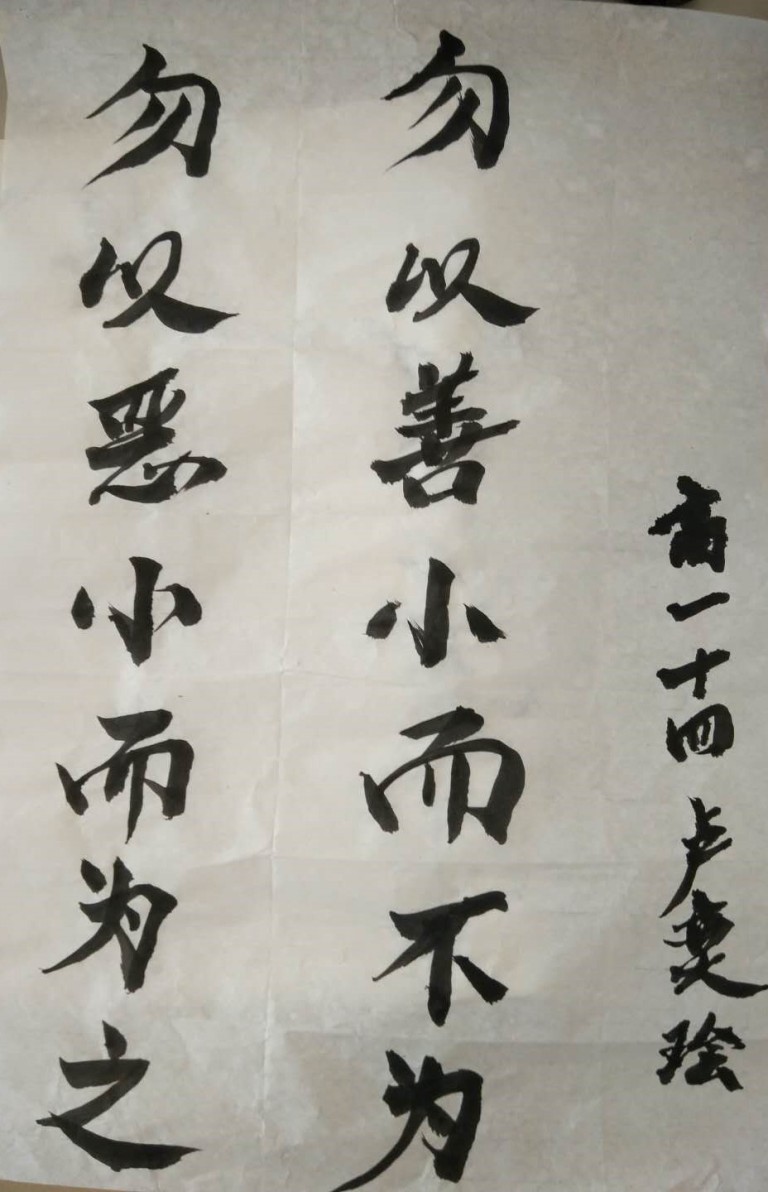 勿以恶小而为之
勿以善小而不为
高一十四 卢奕